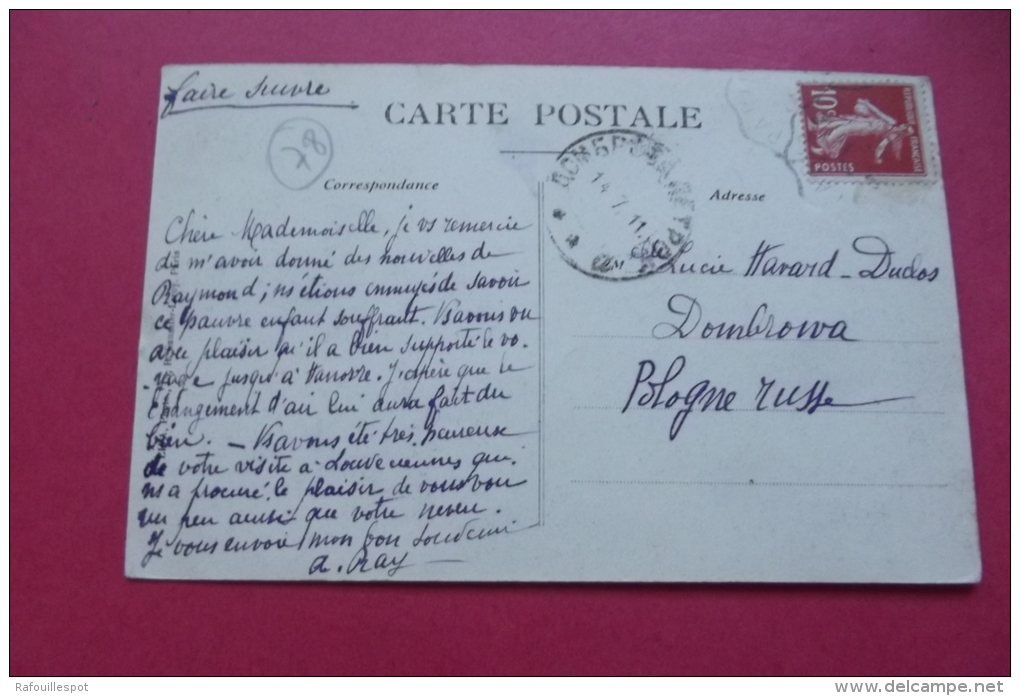 faire suivre
CARTE POSTALE
78
Correspondance
Adresse
RÉPUBLIQUE FRANÇAISE
10c
POSTES
14.7.11
Chère Mademoiselle, je vs remercie
de m'avoir donné des nouvelles de
Raymond; ns étions ennuyés de savoir
ce pauvre enfant souffrant. Ns avons vu
avec plaisir qu'il a bien supporté le vo-
yage jusqu'à Hanovre. J'espère que le
changement d'air lui aura fait du
bien. – Ns avons été très heureuse
de votre visite à Louveciennes qui
ns a procuré le plaisir de vous voir
un peu ainsi que votre neveu.
Je vous envoie mon bon souvenir
Lucie Havard-Duclos
Dombrowa
Pologne russe
Rafouillespot
www.delcampe.net